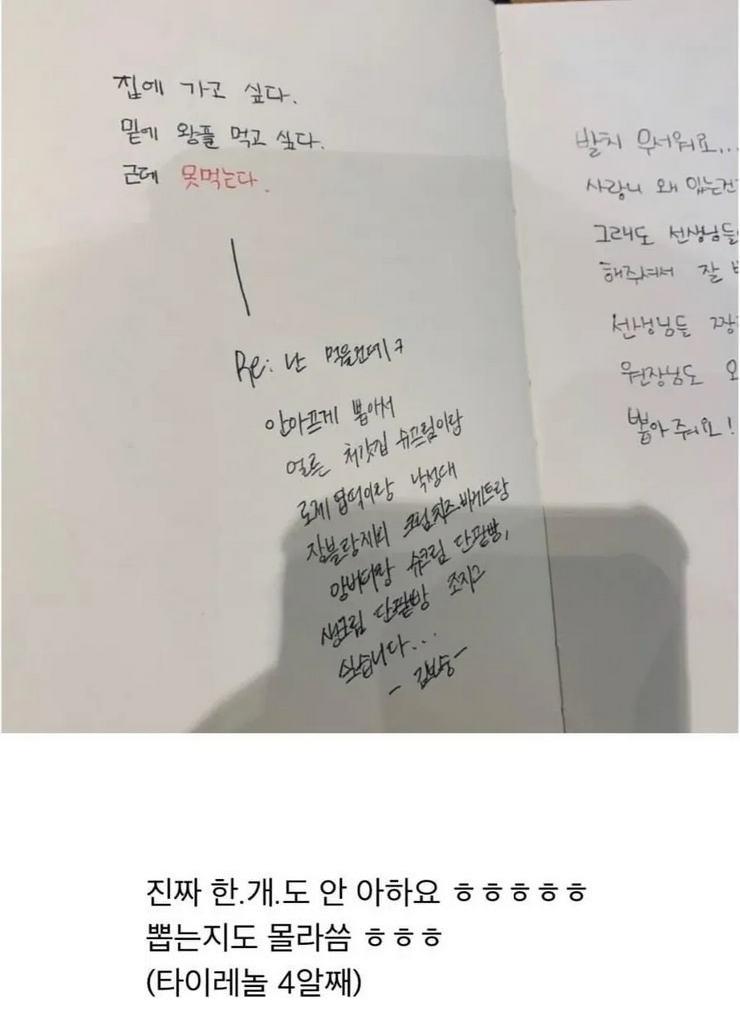 집에 가고 싶다.
밑에 왕플 먹고 싶다.
근데 못먹는다.
Re: 난 먹을건데ㅋ
안아프게 뽑아서
얼른 처갓집 슈프림이랑
로제 엽떡이랑 낙성대
쟝블랑제리 크림치즈바게트랑
앙버터랑 슈크림 단팥빵,
생크림 단팥빵 조지고
싶습니다...
발치 무서워요...
사랑니 왜 있는건
그래도 선생님들
해주셔서 잘
선생님들 짱
원장님도
뽑아줘요!
진짜 한.개.도 안 아하요 ㅎㅎㅎㅎㅎ
뽑는지도 몰라씀 ㅎㅎㅎ
(타이레놀 4알째)